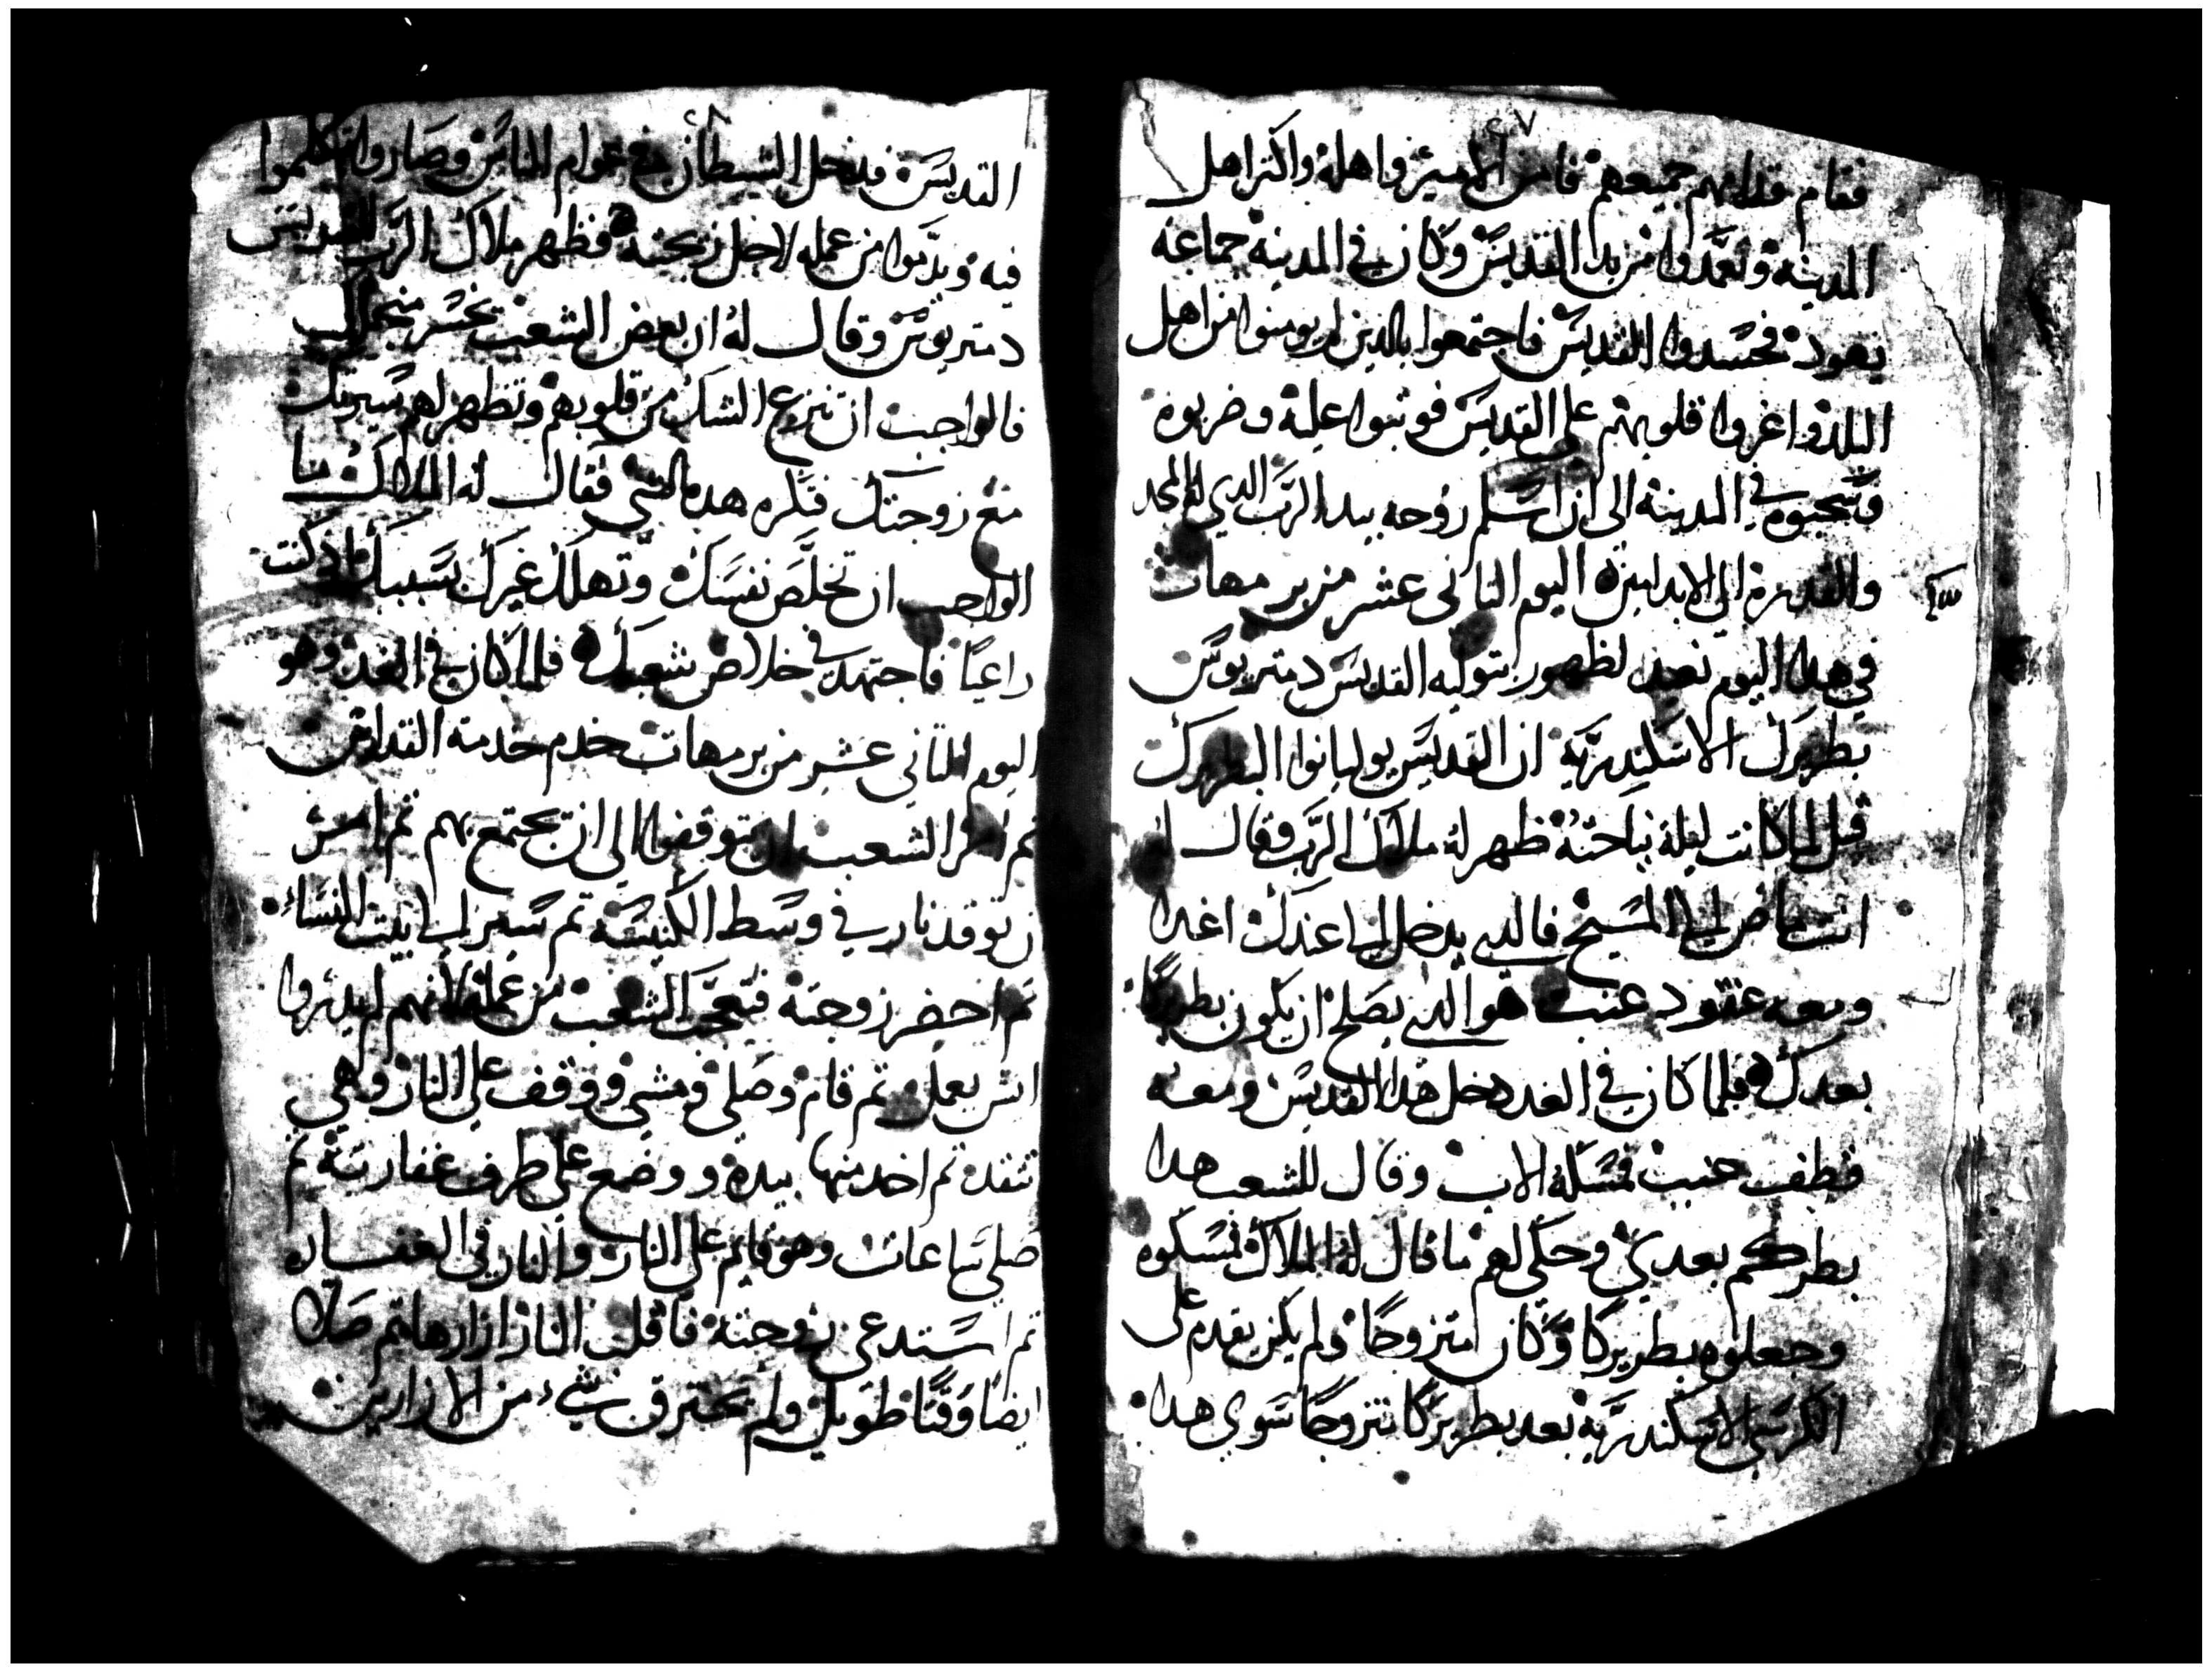 ٤٧
فقام قدامهم جميعهم فامن الامير واهله واكتر اهل
المدينه وتعمدوا من يد القديس وكان في المدينه جماعه
يهود فحسدوا القديس فاجتمعوا بالدين لم يومنوا من اهل
البلد واغروا قلوبهم على القديس فوتبوا عليه وضربوه
وسحبوه في المدينه الى ان اسلم روحه بيد الرب الدي له المجد
والقدره الى الابد امين اليوم التانى عشر من برمهات
في هدا اليوم نعيد لظهور بتوليه القديس دمتريوس
بطريرك الاسكندريه ان القديس يوليانوا البطريرك
قبل لما كانت ليلة نياحته ظهر له ملاك الرب وقال له
انت ماض الى المسيح فالدي يدخل الى عندك اغدا
ومعه عنقود عنب هو الدي يصلح ان يكون بطريركا
بعدك فلما كان في الغد دخل هدا القديس ومعه
قطف عنب فمسكه الاب وقال للشعب هدا
بطركم بعدي وحكى لهم ما قال له الملاك فمسكوه
وجعلوه بطريركا وكان متزوجا ولم يكن يقدم على
الكرسي الاسكندريه بعد بطريركا متزوجا سوي هدا
٤٨
القديس فدخل الشيطان في عوام الناس وصاروا يتكلموا
فيه ويدموا من عمله لاجل زيجته فظهر ملاك الرب للقديس
دمتريوس وقال له ان بعض الشعب تخسر
فالواجب ان تنزع الشك من قلوبهم وتظهر لهم سيرتك
مع زوجتك فكره هدا الشي فقال له الملاك ما
الواجب ان تخلص نفسك وتهلك غيرك بسببك ادكنت
راعيا فاجتهد في خلاص شعبك فلما كان في الغد وهو
اليوم التاني عشر من برمهات خدم خدمة القداس
تم امر الشعب ان يتوقفوا الى ان يجتمع بهم تم امر
ان توقد نار في وسط الكنيسه تم سير الى بيت النساء
تم احضر زوجته فتعجب الشعب من عمله لانهم لم يدروا
اش يعمل تم قام وصلى ومشى ووقف على النار وهي
تتقد تم اخد منها بيده ووضع على طرف عفارته تم
صلى ساعات وهو قايم على النار والنار في العفاره
تم استدعى زوجته فاقلب النار ازارها تم صلا
ايضا وقتا طويل ولم يحترق شيء من الازارين